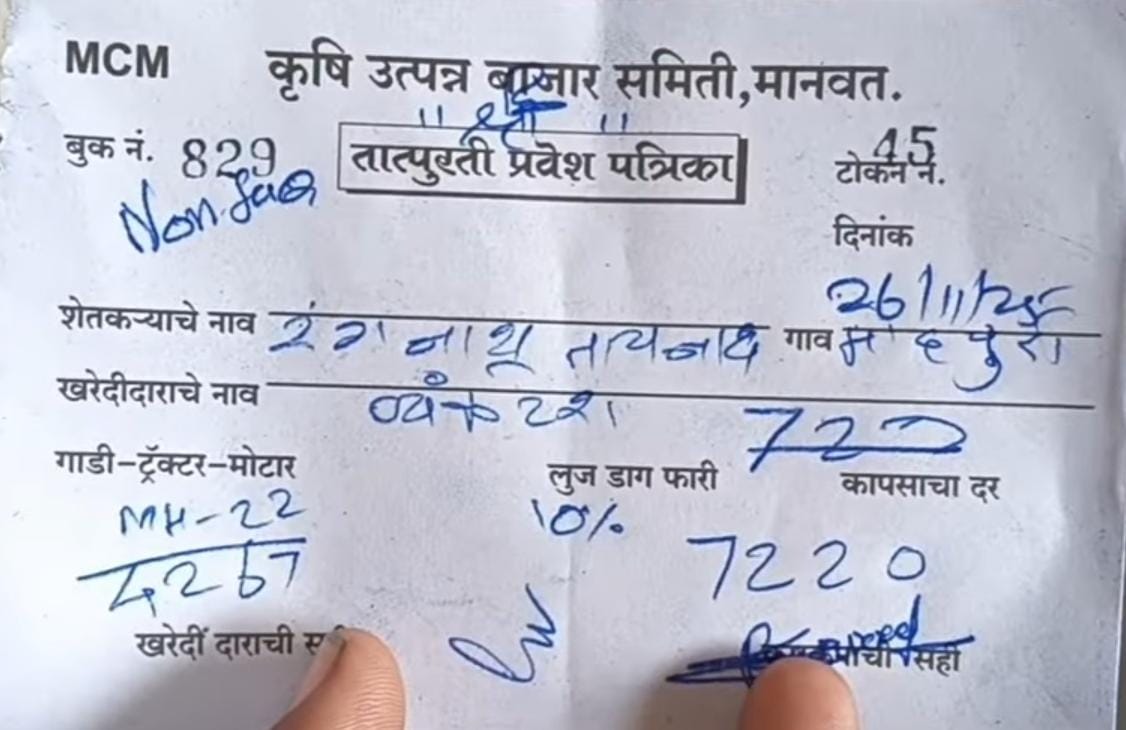 MCM कृषि उत्पन्न बाजार समिती,मानवत.
" श्री "
बुक नं. 829 तात्पुरती प्रवेश पत्रिका 45 टोकन नं.
Non
दिनांक
26/11/25
शेतकऱ्याचे नाव रंगनाथ गाव
खरेदीदाराचे नाव व्यंकटेश 722
गाडी-ट्रॅक्टर-मोटार लुज डाग फारी कापसाचा दर
MH-22 10% 7220
4267
खरेदीं दाराची सही